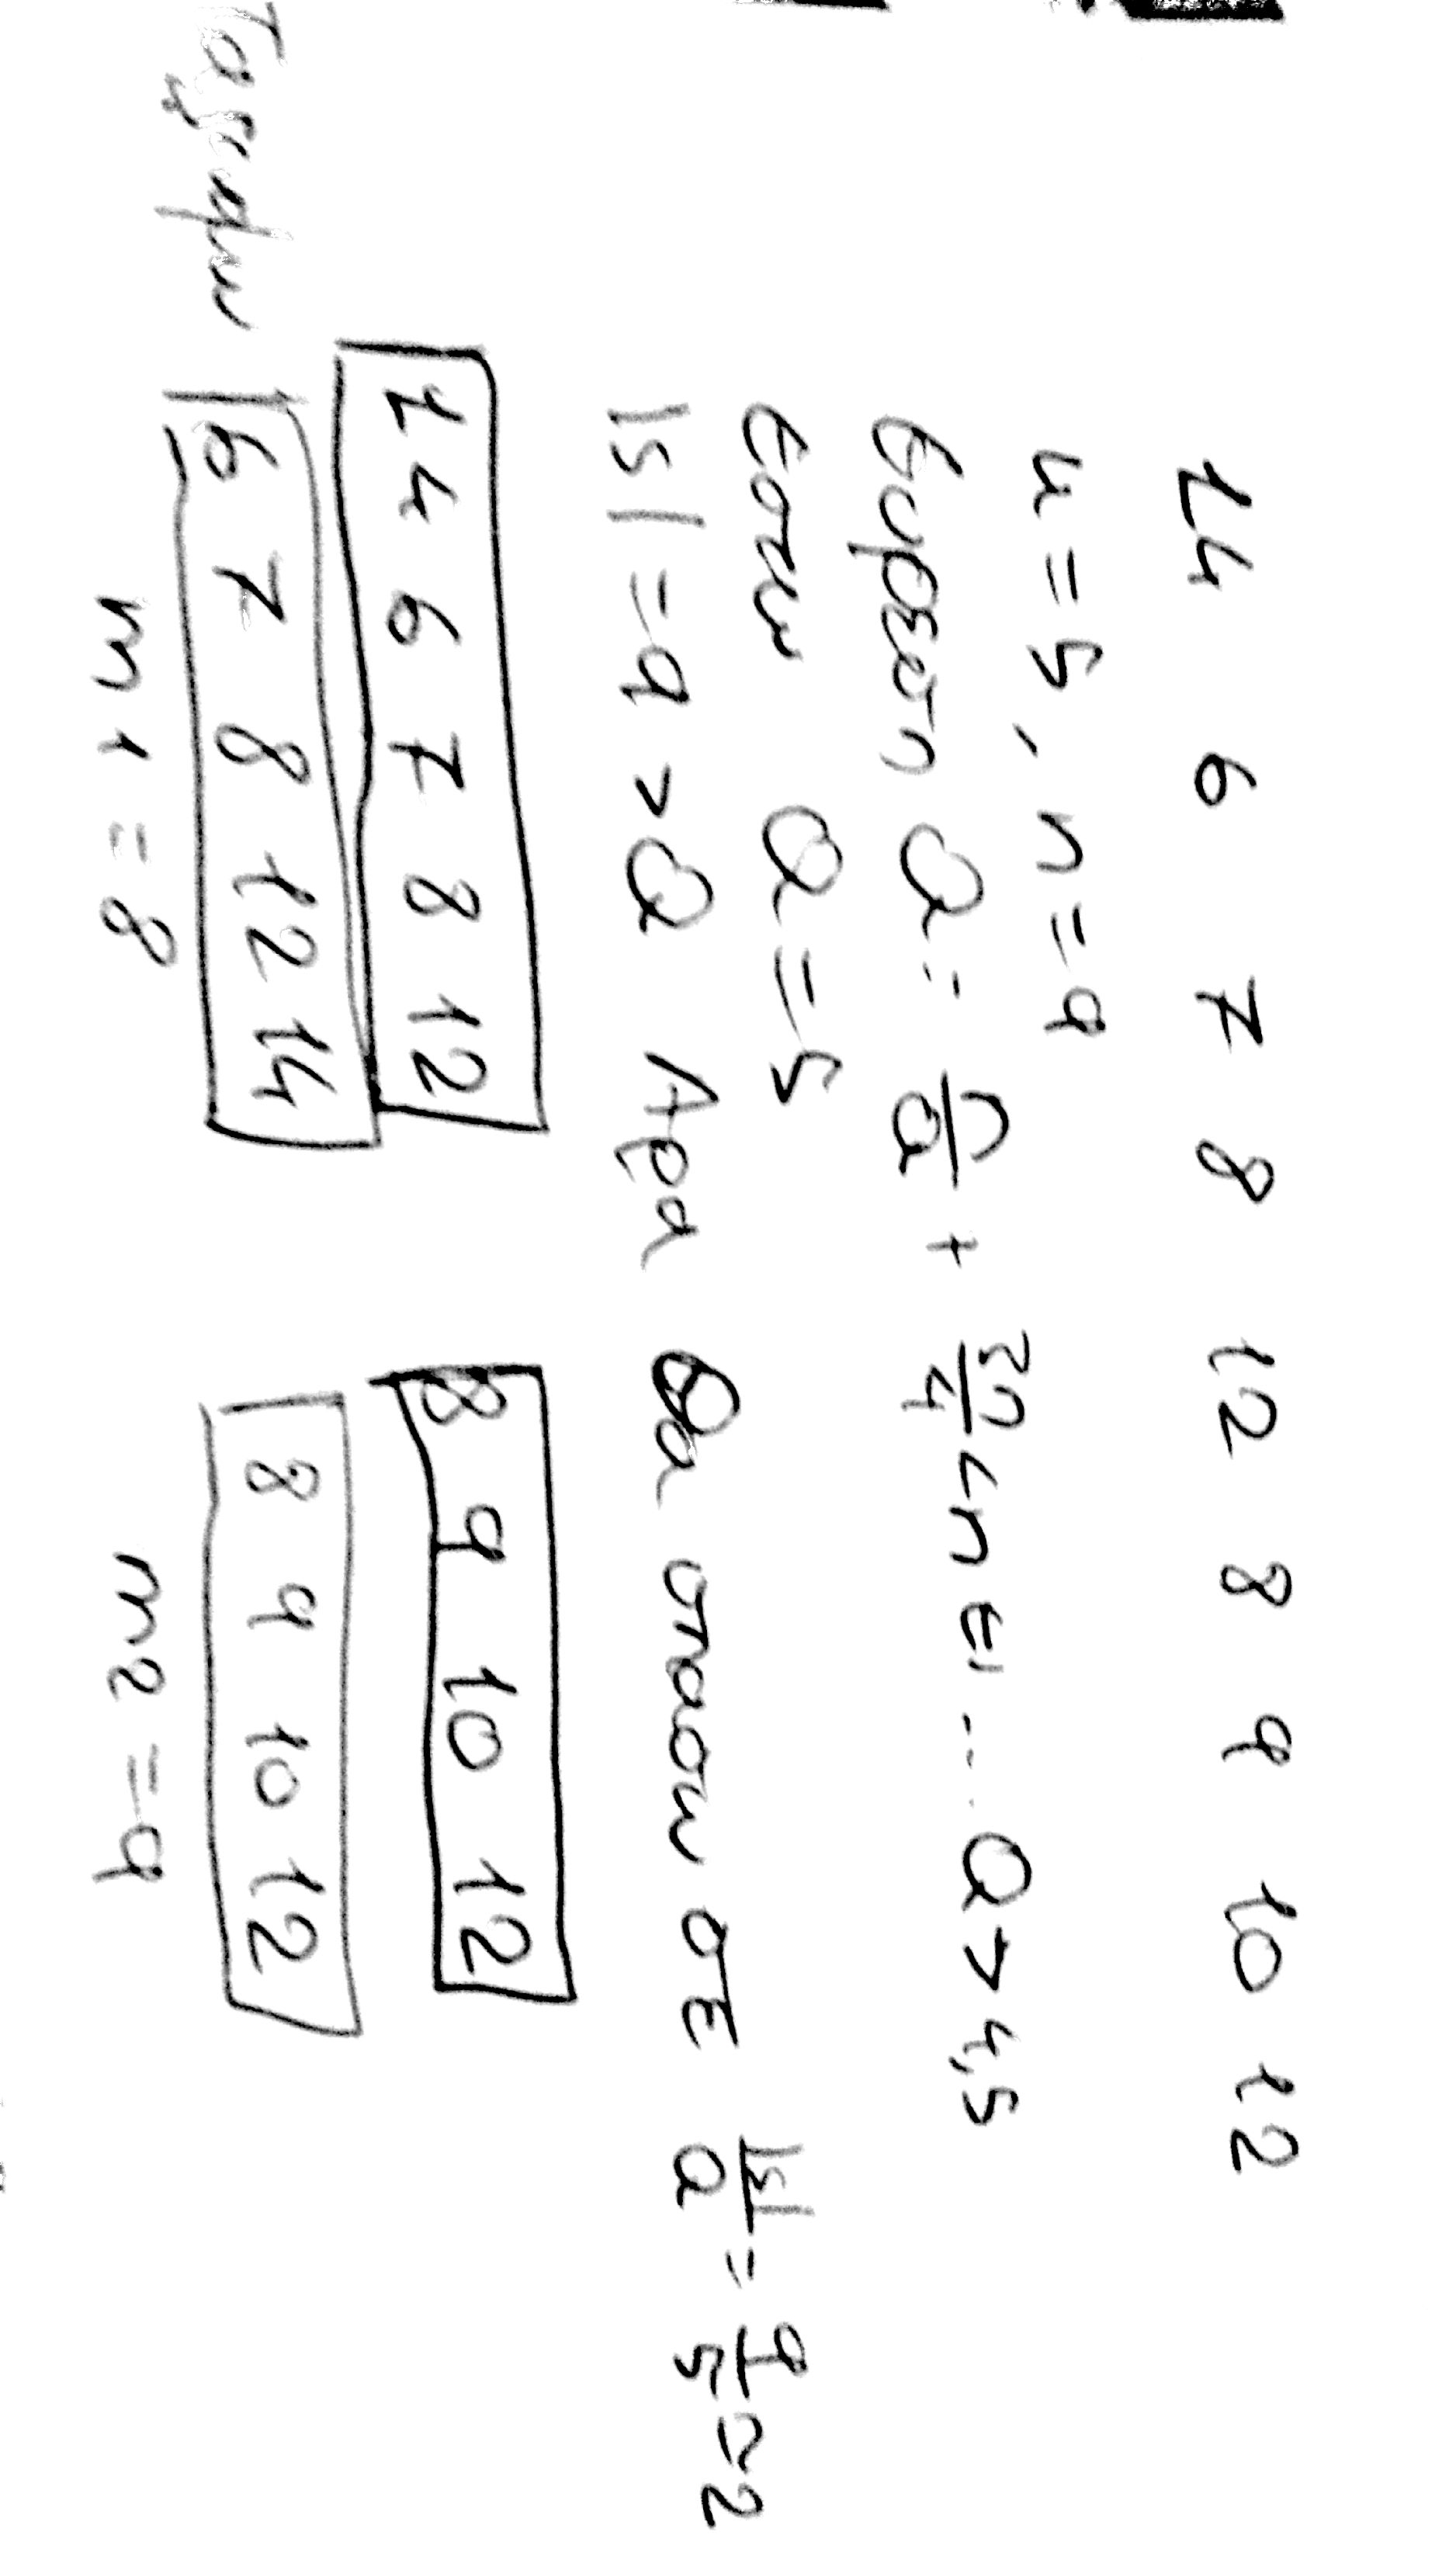 14 6 7 8 12 8 9 10 12
κ = 5, n = 9
Ευρεση Q = n/Q + 3n/4 < n ει ... Q > 4,5
εστω Q = 5
|s| = 9 > Q Αρα θα σπασω σε |s|/Q = 9/5 ≃ 2
14 6 7 8 12 8 9 10 12
6 7 8 12 14 8 9 10 12
m1 = 8 m2 = 9